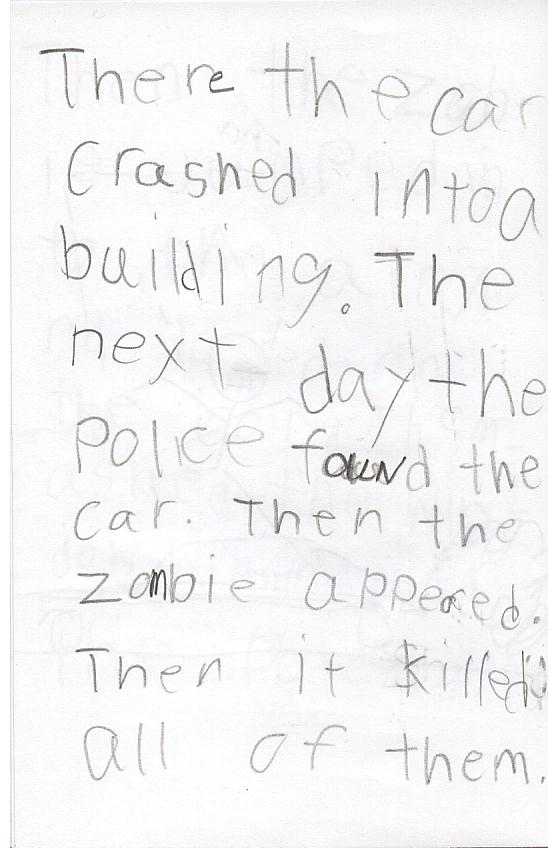 There the car
crashed into a
building. The
next day the
police found the
car. Then the
zombie appeared.
Then it killed
all of them.